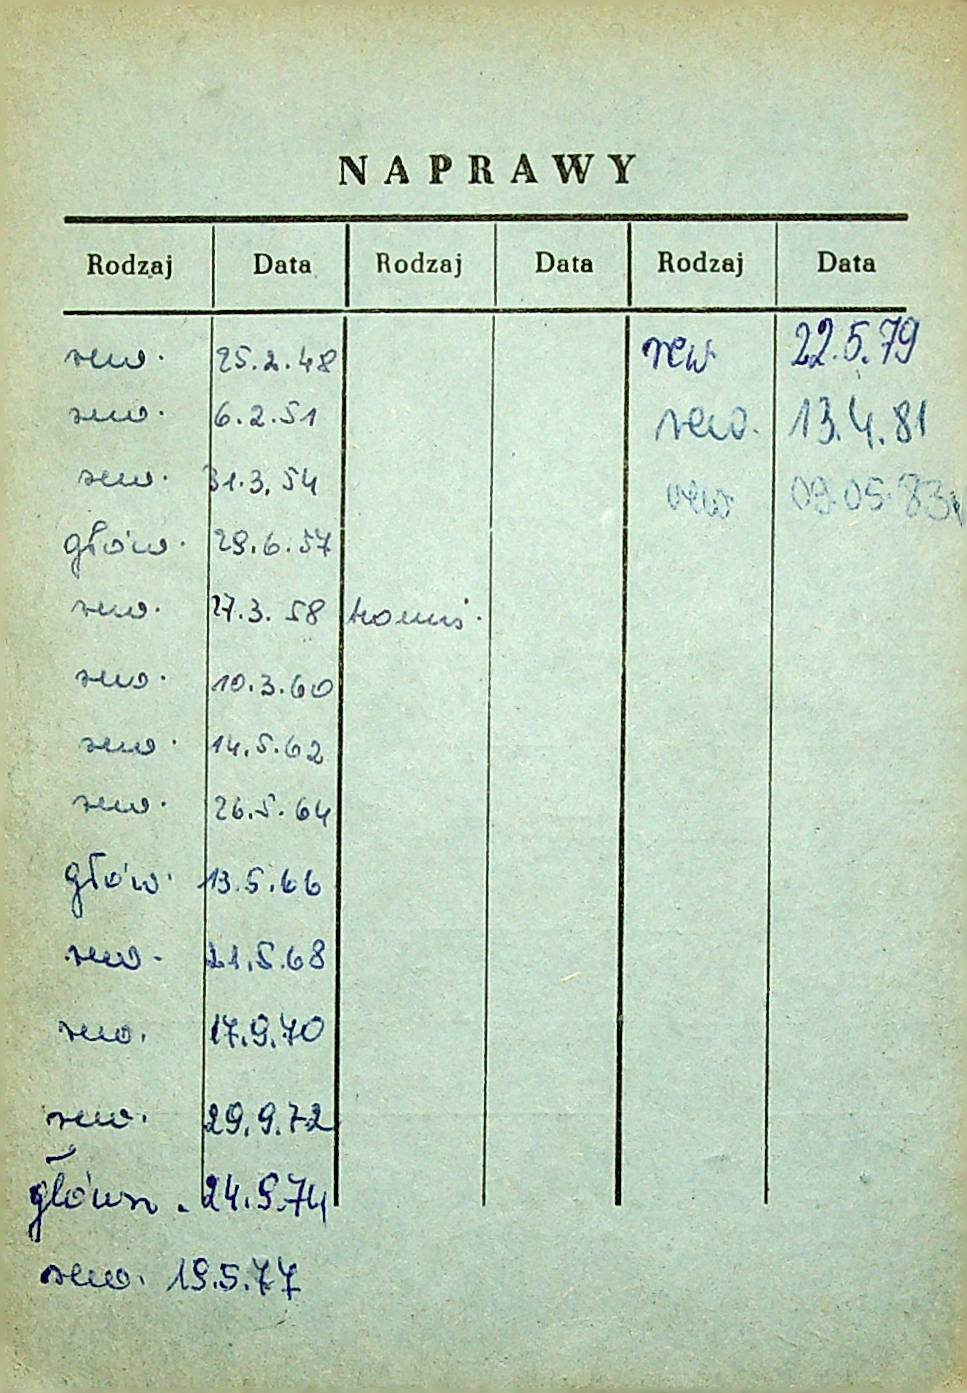 NAPRAWY
Rodzaj Data Rodzaj Data Rodzaj Data
rew. 25.2.48 rew 22.5.79
rew. 6.2.51 rew. 13.4.81
rew. 31.3.54 rew 09.05.83
głów. 29.6.57
rew. 27.3.58
rew. 10.3.60
rew. 14.5.62
rew. 26.5.64
głów. 13.5.66
rew. 21.5.68
rew. 17.9.70
rew. 29.9.72
główn. 24.9.74
rew. 19.5.77